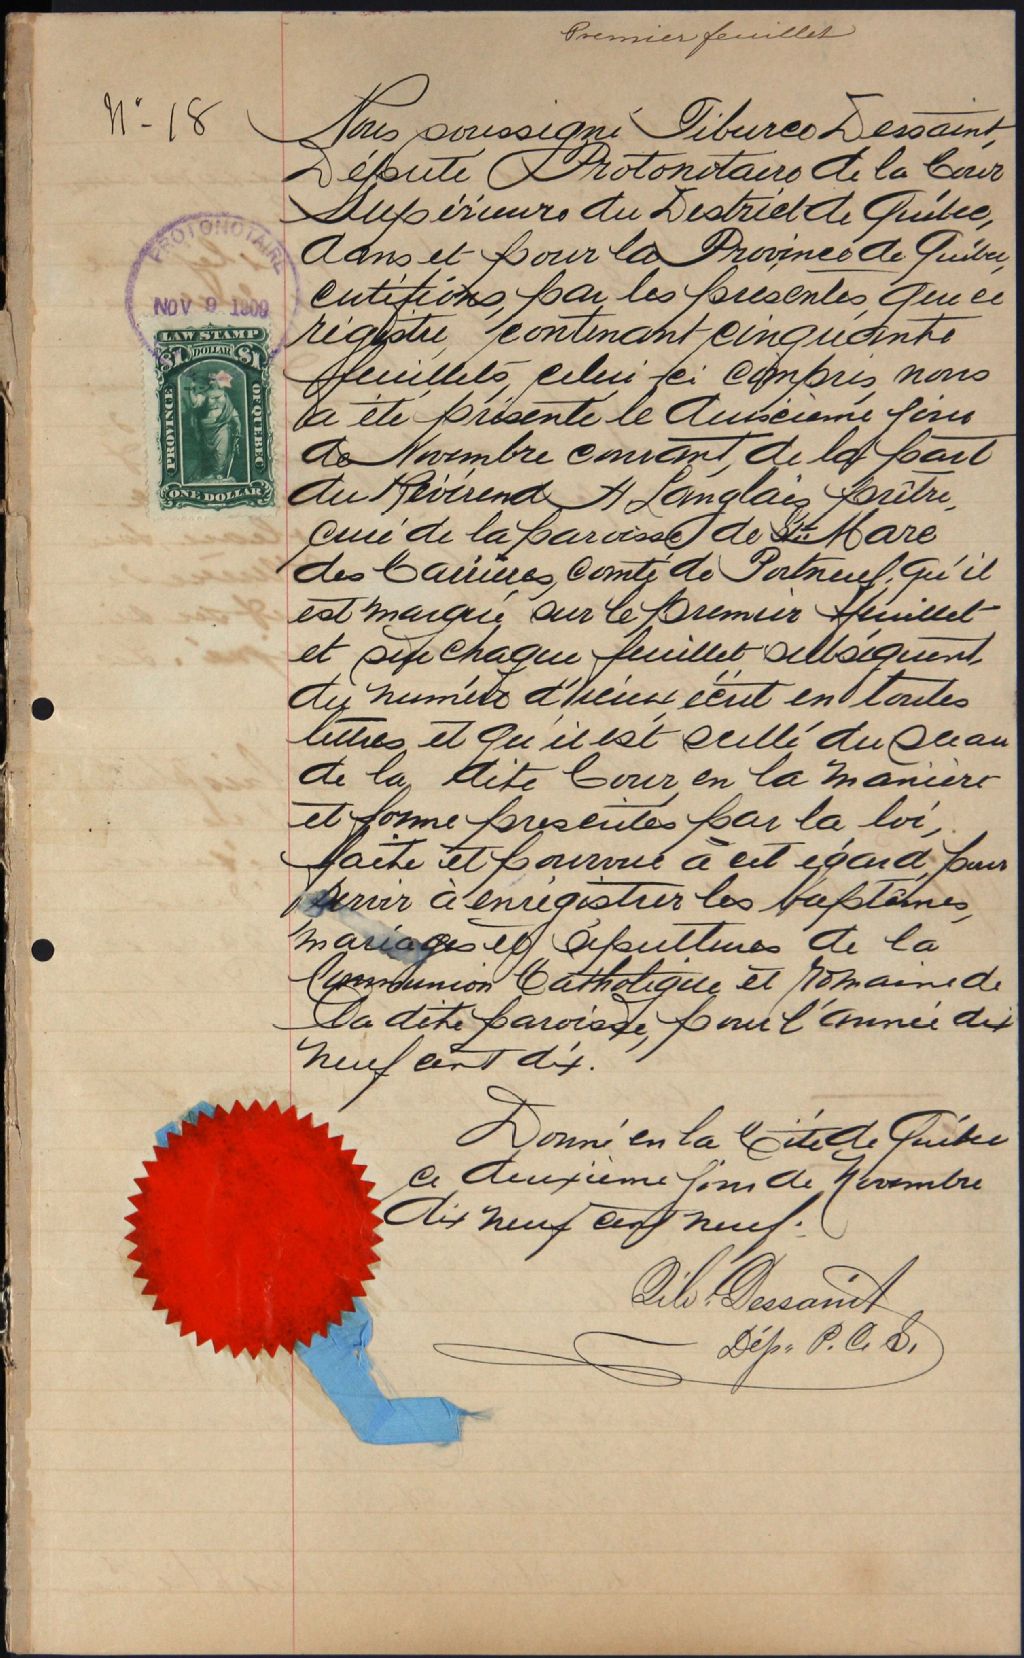 Premier feuillet
N° - 18
Nous soussigné Tiburce Dessaint,
Député Protonotaire de la Cour
Supérieure du District de Québec,
dans et pour la Province de Québec,
certifions, par les présentes, que ce
régistre, contenant cinquante
feuillets, celui-ci compris, nous
a été présenté le deuxième jour
de Novembre courant, de la part
du Révérend A Langlais, prêtre,
curé de la paroisse de St Marc
des Carrières, comté de Portneuf, qu'il
est marqué sur le premier feuillet
et sur chaque feuillet subséquent,
du numéro d'iceux, écrit en toutes
lettres, et qu'il est scellé du sceau
de la dite Cour, en la manière
et forme prescrites par la loi,
faite et pourvue à cet égard, pour
servir à enrégistrer les baptêmes,
mariages et sépultures de la
Communion Catholique et romaine de
la dite paroisse, pour l'année dix
neuf cent dix.
Donné en la Cité de Québec
ce deuxième jour de Novembre
dix neuf cent neuf.
Tib. Dessaint
Dép. P. C. S.
PROTONOTAIRE
NOV 9 1909
LAW STAMP
$1 DOLLAR $1
PROVINCE OF QUEBEC
ONE DOLLAR